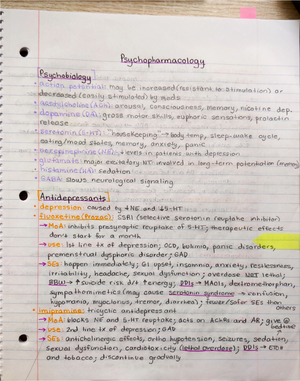 Psychopharmacology
Psychobiology
• action potential: may be increased (resistant to stimulation) or
decreased (easily stimulated) by meds
• acetylcholine (ACh): arousal, consciousness, memory, nicotine dep.
• dopamine (DA): gross motor skills, euphoric sensations, prolactin
release
• serotonin (5-HT): "housekeeping" → body temp, sleep-wake cycle,
eating/mood states, memory, anxiety, panic
• norepinephrine (NE): ↓ levels in patients with depression
• glutamate: major excitatory NT involved in long-term potentiation
• histamine (HA): sedation
• GABA: slows neurological signaling
Antidepressants
• depression: caused by ↓NE and ↓5-HT
• fluoxetine (Prozac): SSRI (selective serotonin reuptake inhibitor)
→ MoA: inhibits presynaptic reuptake of 5-HT; therapeutic effects
don't start for a month
→ use: 1st line tx of depression; OCD, bulimia, panic disorders,
premenstrual dysphoric disorder; GAD
→ SEs: happen immediately; GI upset, insomnia, anxiety, restlessness,
irritability, headache, sexual dysfunction; overdose NOT lethal;
BBW → ↑ suicide risk d/t ↑energy; DDIs → MAOIs, dextromethorphan,
sympathomimetics (may cause serotonin syndrome → confusion,
hypomania, myoclonus, tremor, diarrhea); fewer/safer SEs than
others
• imipramine: tricyclic antidepressant
→ MoA: blocks NE and 5-HT reuptake; acts on AChRs and AR; give @
bedtime
→ use: 2nd line tx of depression; GAD
→ SEs: anticholinergic effects, ortho.hypotension, seizures, sedation,
sexual dysfunction, cardiotoxicity (lethal overdose); DDIs → EtOH
and tobacco; discontinue gradually